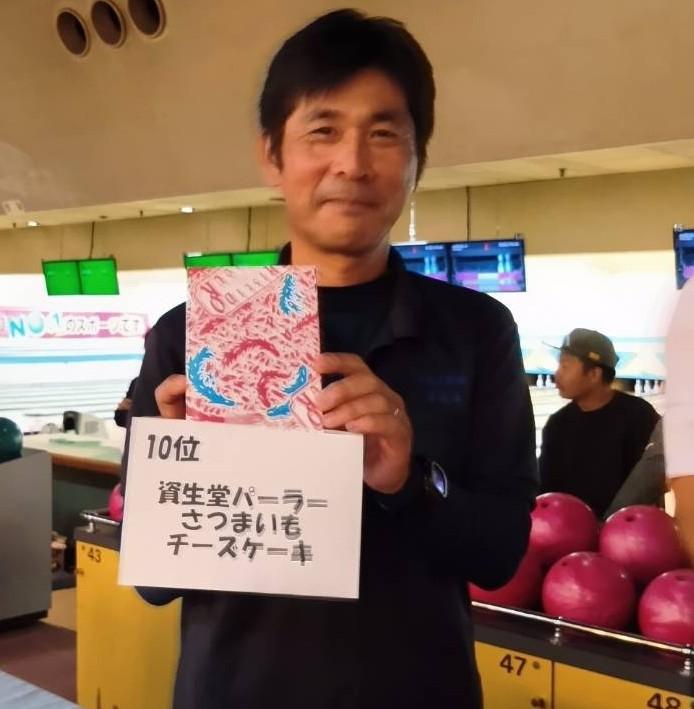 NO.1のスポーツです
10位
資生堂パーラー
さつまいも
チーズケーキ
43
47
48